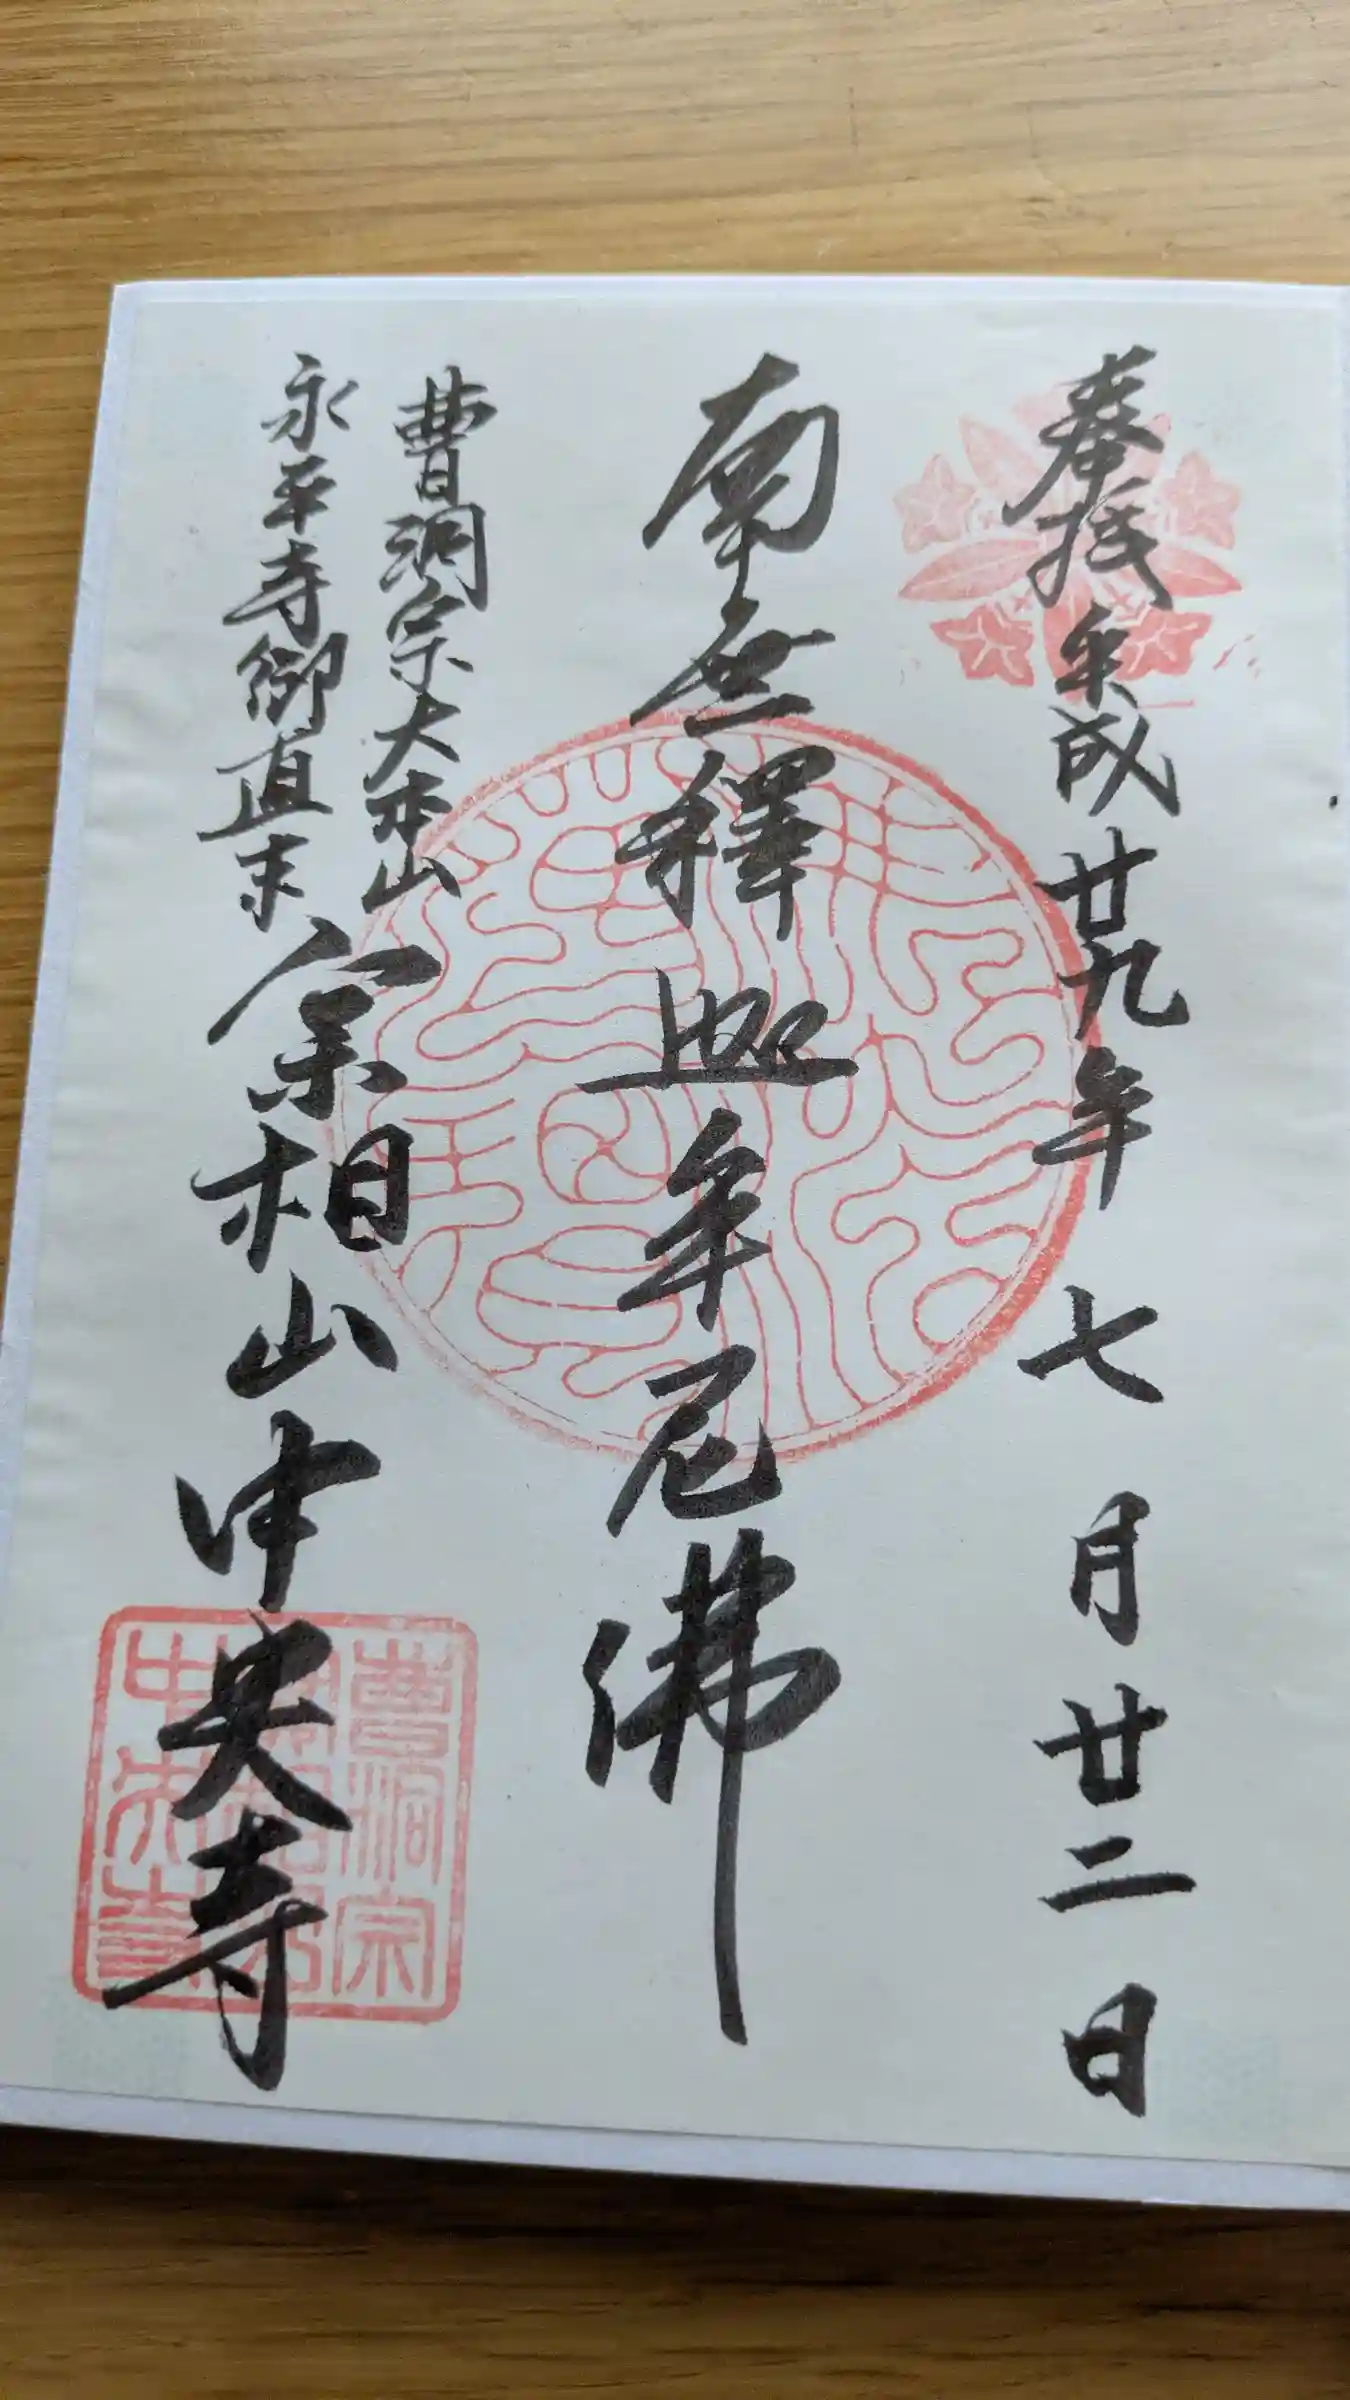 奉拝 平成廿九年 七月廿二日
南無釋迦牟尼佛
曹洞宗大本山
永平寺御直末
相山中央寺
曹洞宗
中央寺